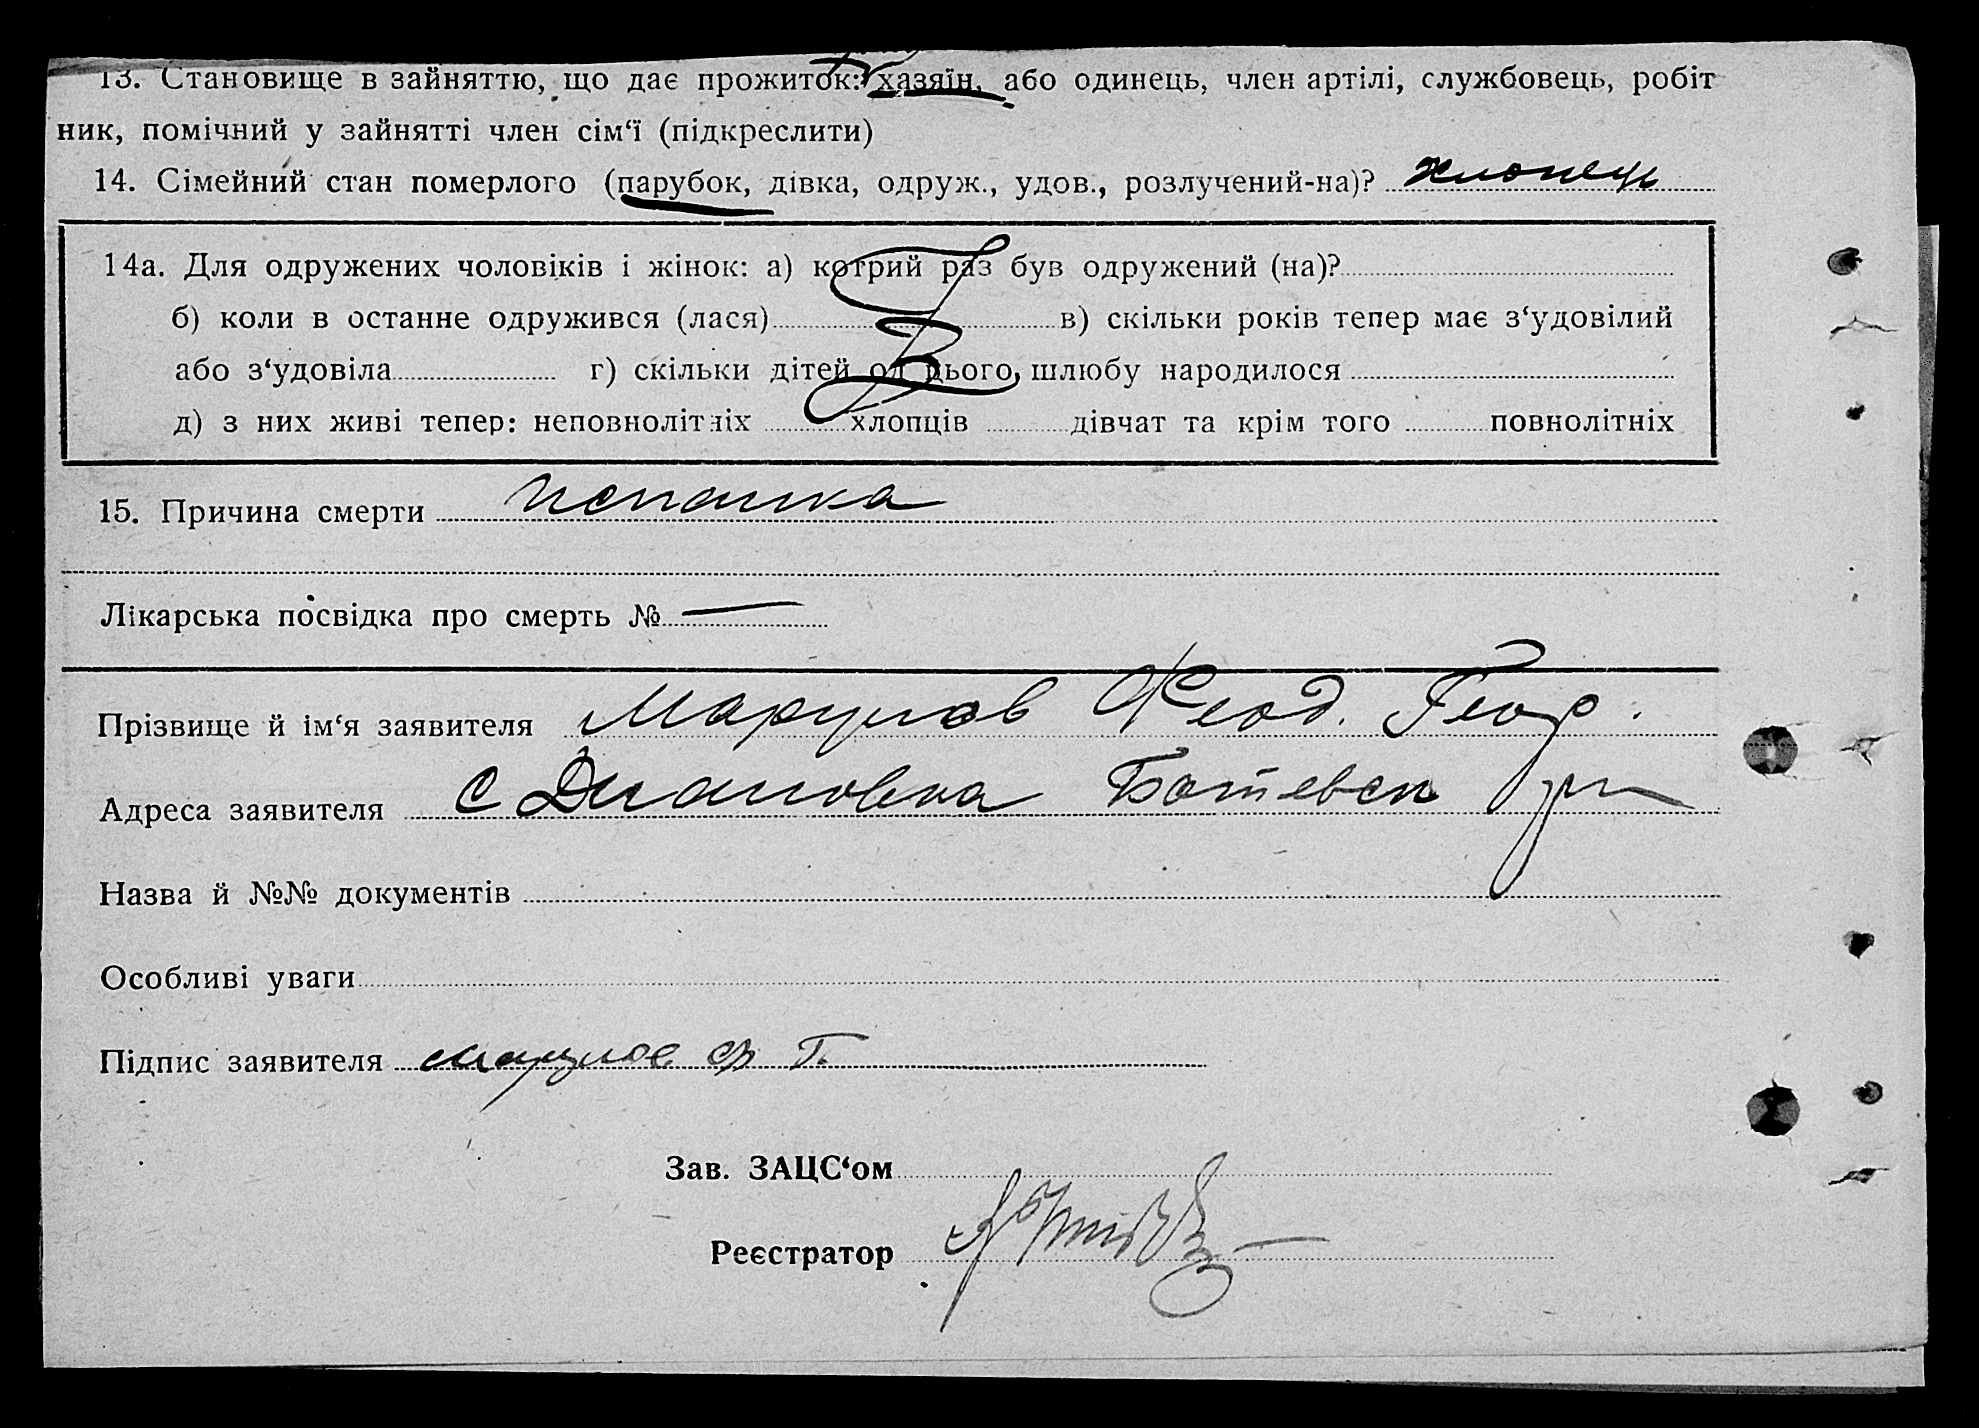 13. Становище в зайняттю, що дає прожиток: хазяїн, або одинець, член артілі, службовець, робіт
ник, помічний у зайнятті член сім‘ї (підкреслити)
14. Сімейний стан померлого (парубок, дівка, одруж., удов., розлучений-на)? хлопець
14а. Для одружених чоловіків і жінок: а) котрий раз був одружений (на)?
б) коли в останне одружився (лася) в) скільки років тепер має з‘удовілий
або з‘удовіла г) скільки дітей од цього шлюбу народилося
д) з них живі тепер: неповнолітніх хлопців дівчат та крім того повнолітніх
15. Причина смерти испанка
Лікарська посвідка про смерть № —
Прізвище й ім‘я заявителя Марулов Феод. Геор.
Адреса заявителя с Диановка Ботевск
Назва й №№ документів
Особливі уваги
Підпис заявителя Марулов Ф Г.
Зав. ЗАЦС‘ом
Реєстратор